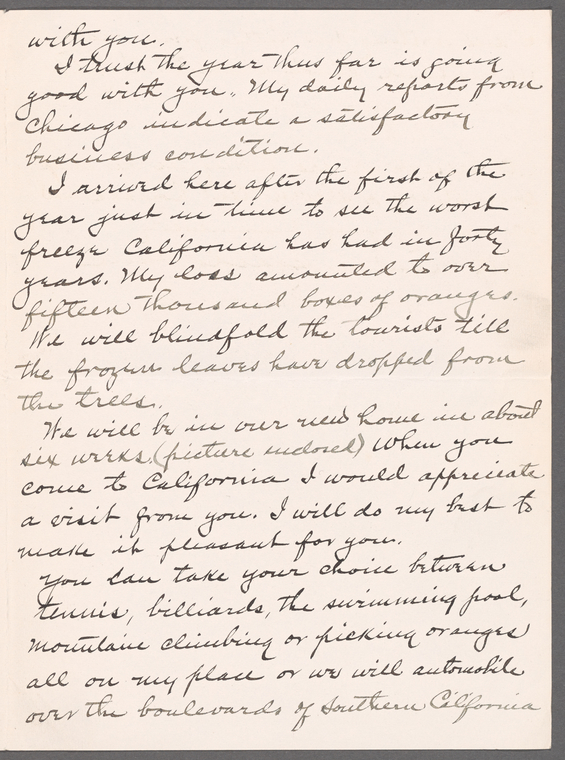 with you.
I trust the year thus far is going
good with you. My daily reports from
Chicago indicate a satisfactory
business condition.
I arrived here after the first of the
year just in time to see the worst
freeze California has had in forty
years. My loss amounted to over
fifteen thousand boxes of oranges.
We will blindfold the tourists till
the frozen leaves have dropped from
the trees.
We will be in our new home in about
six weeks. (picture enclosed) When you
come to California I would appreciate
a visit from you. I will do my best to
make it pleasant for you.
You can take your choice between
tennis, billiards, the swimming pool,
mountain climbing or picking oranges
all on my place or we will automobile
over the boulevards of Southern California